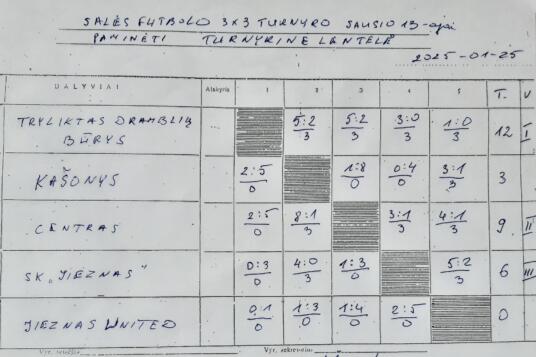 SALĖS FUTBOLO 3X3 TURNYRO SAUSIO 13-ajai
PAMINĖTI TURNYRINĖ LENTELĖ
2025-01-25
DALYVIAI Atskyris 1 2 3 4 5 T. V
TRYLIKTAS DRAMBLIŲ BŪRYS 5:2/3 5:2/3 3:0/3 1:0/3 12 I
KAŠONYS 2:5/0 1:8/0 0:4/0 3:1/3 3
CENTRAS 2:5/0 8:1/3 3:1/3 4:1/3 9 II
SK „JIEZNAS" 0:3/0 4:0/3 1:3/0 5:2/3 6 III
JIEZNAS UNITED 0:1/0 1:3/0 1:4/0 2:5/0 0
Vyr. sekretorius